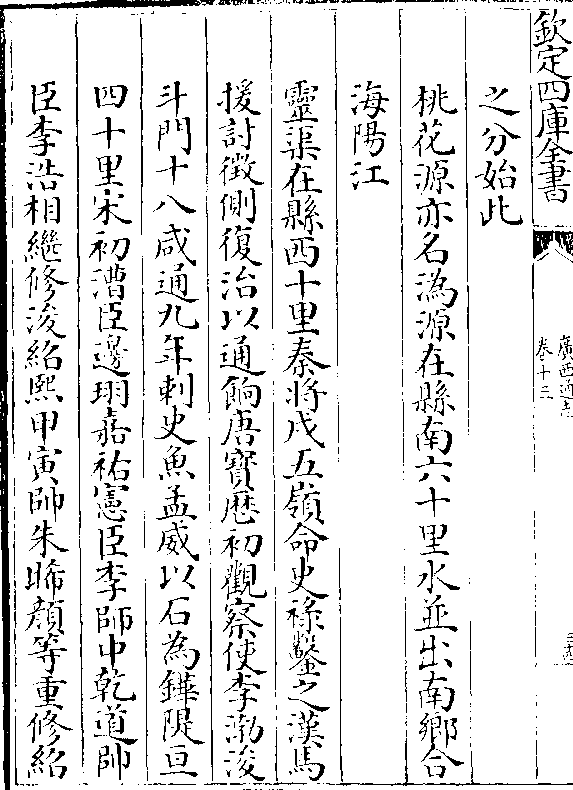 欽定四庫全書
廣西通志
卷十三
之分始此
桃花源亦名溈源在縣南六十里水並出南鄉合
海陽江
靈渠在縣西十里秦將戍五嶺命史祿鑿之漢馬
援討徵側復治以通餉唐寶歴初觀察使李渤浚
斗門十八咸通九年刺史魚孟威以石為鏵隄亘
四十里宋初漕臣邊珝嘉祐憲臣李師中乾道帥
臣李浩相繼修浚紹熙甲寅帥朱晞顔等重修紹